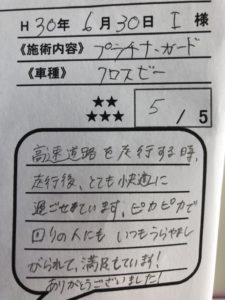 H 30年 6月 30日 I 様
《施術内容》 プラチナ・ガード
《車種》 クロスビー
★★
★★★
5 / 5
高速道路を走行する時、
走行後、とても快適に
過ごせれています。ピカピカで
回りの人にもいつもうらやまし
がられて、満足しています!
ありがとうございました!